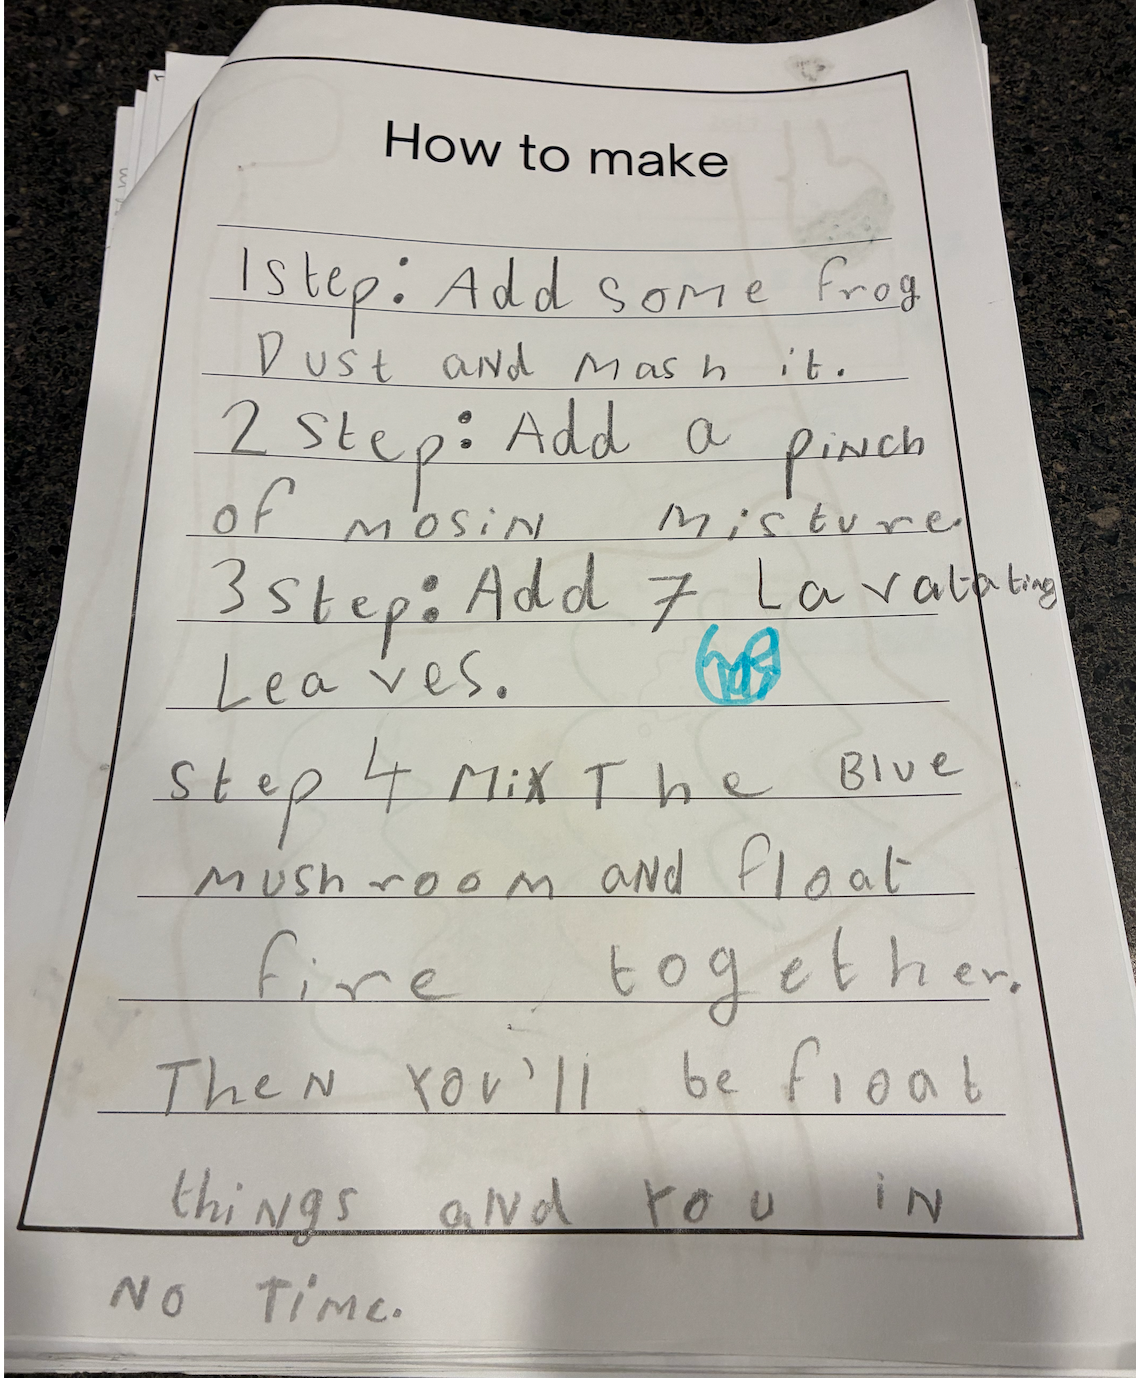 How to make
1step: Add some frog
Dust aNd mash it.
2 step: Add a piNch
of mosiN misture.
3 step: Add 7 Lavatating
Leaves.
step 4 MiX The Blue
mushroom aNd float
fire together.
TheN You'll be float
thiNgs aNd You iN
No Time.